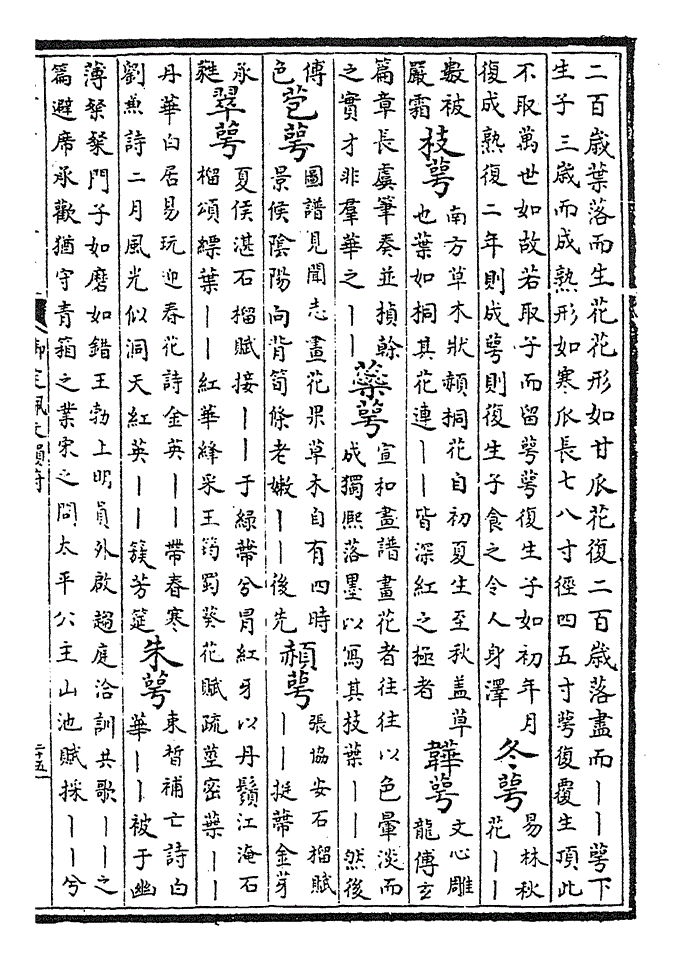 二百歲葉落而生花花形如甘瓜花復二百歲落盡而丨丨萼下
生子三歲而成熟形如寒瓜長七八寸徑四五寸萼復覆生頂此
不取萬世如故若取子而留萼萼復生子如初年月
復成熟復二年則成萼則復生子食之令人身澤
冬萼
易林秋
花丨丨
數被
嚴霜
枝萼
南方草木狀赬桐花自初夏生至秋蓋草
也葉如桐其花連丨丨皆深紅之極者
韡萼
文心雕
龍傅玄
篇章長虞筆奏並楨幹
之實才非羣華之丨丨
蘂萼
宣和畫譜畫花者往往以色暈淡而
成獨熙落墨以寫其枝葉丨丨然後
傅
色
苞萼
圖譜見聞志畫花果草木自有四時
景侯陰陽向背筍條老嫩丨丨後先
赬萼
張協安石榴賦
丨丨挺蔕金芽
承
蕤
翠萼
夏侯湛石榴賦接丨丨于綠蔕兮冐紅牙以丹鬚江淹石
榴頌縹葉丨丨紅華絳采王筠蜀葵花賦疏莖密葉丨丨
丹華白居易玩迎春花詩金英丨丨帶春寒
劉兼詩二月風光似洞天紅英丨丨簇芳筵
朱萼
束晳補亡詩白
華丨丨被于幽
薄粲粲門子如磨如錯王勃上明員外啟趨庭洽訓共歌丨丨之
篇避席承歡猶守青箱之業宋之問太平公主山池賦採丨丨兮
御定佩文韻府
二十五